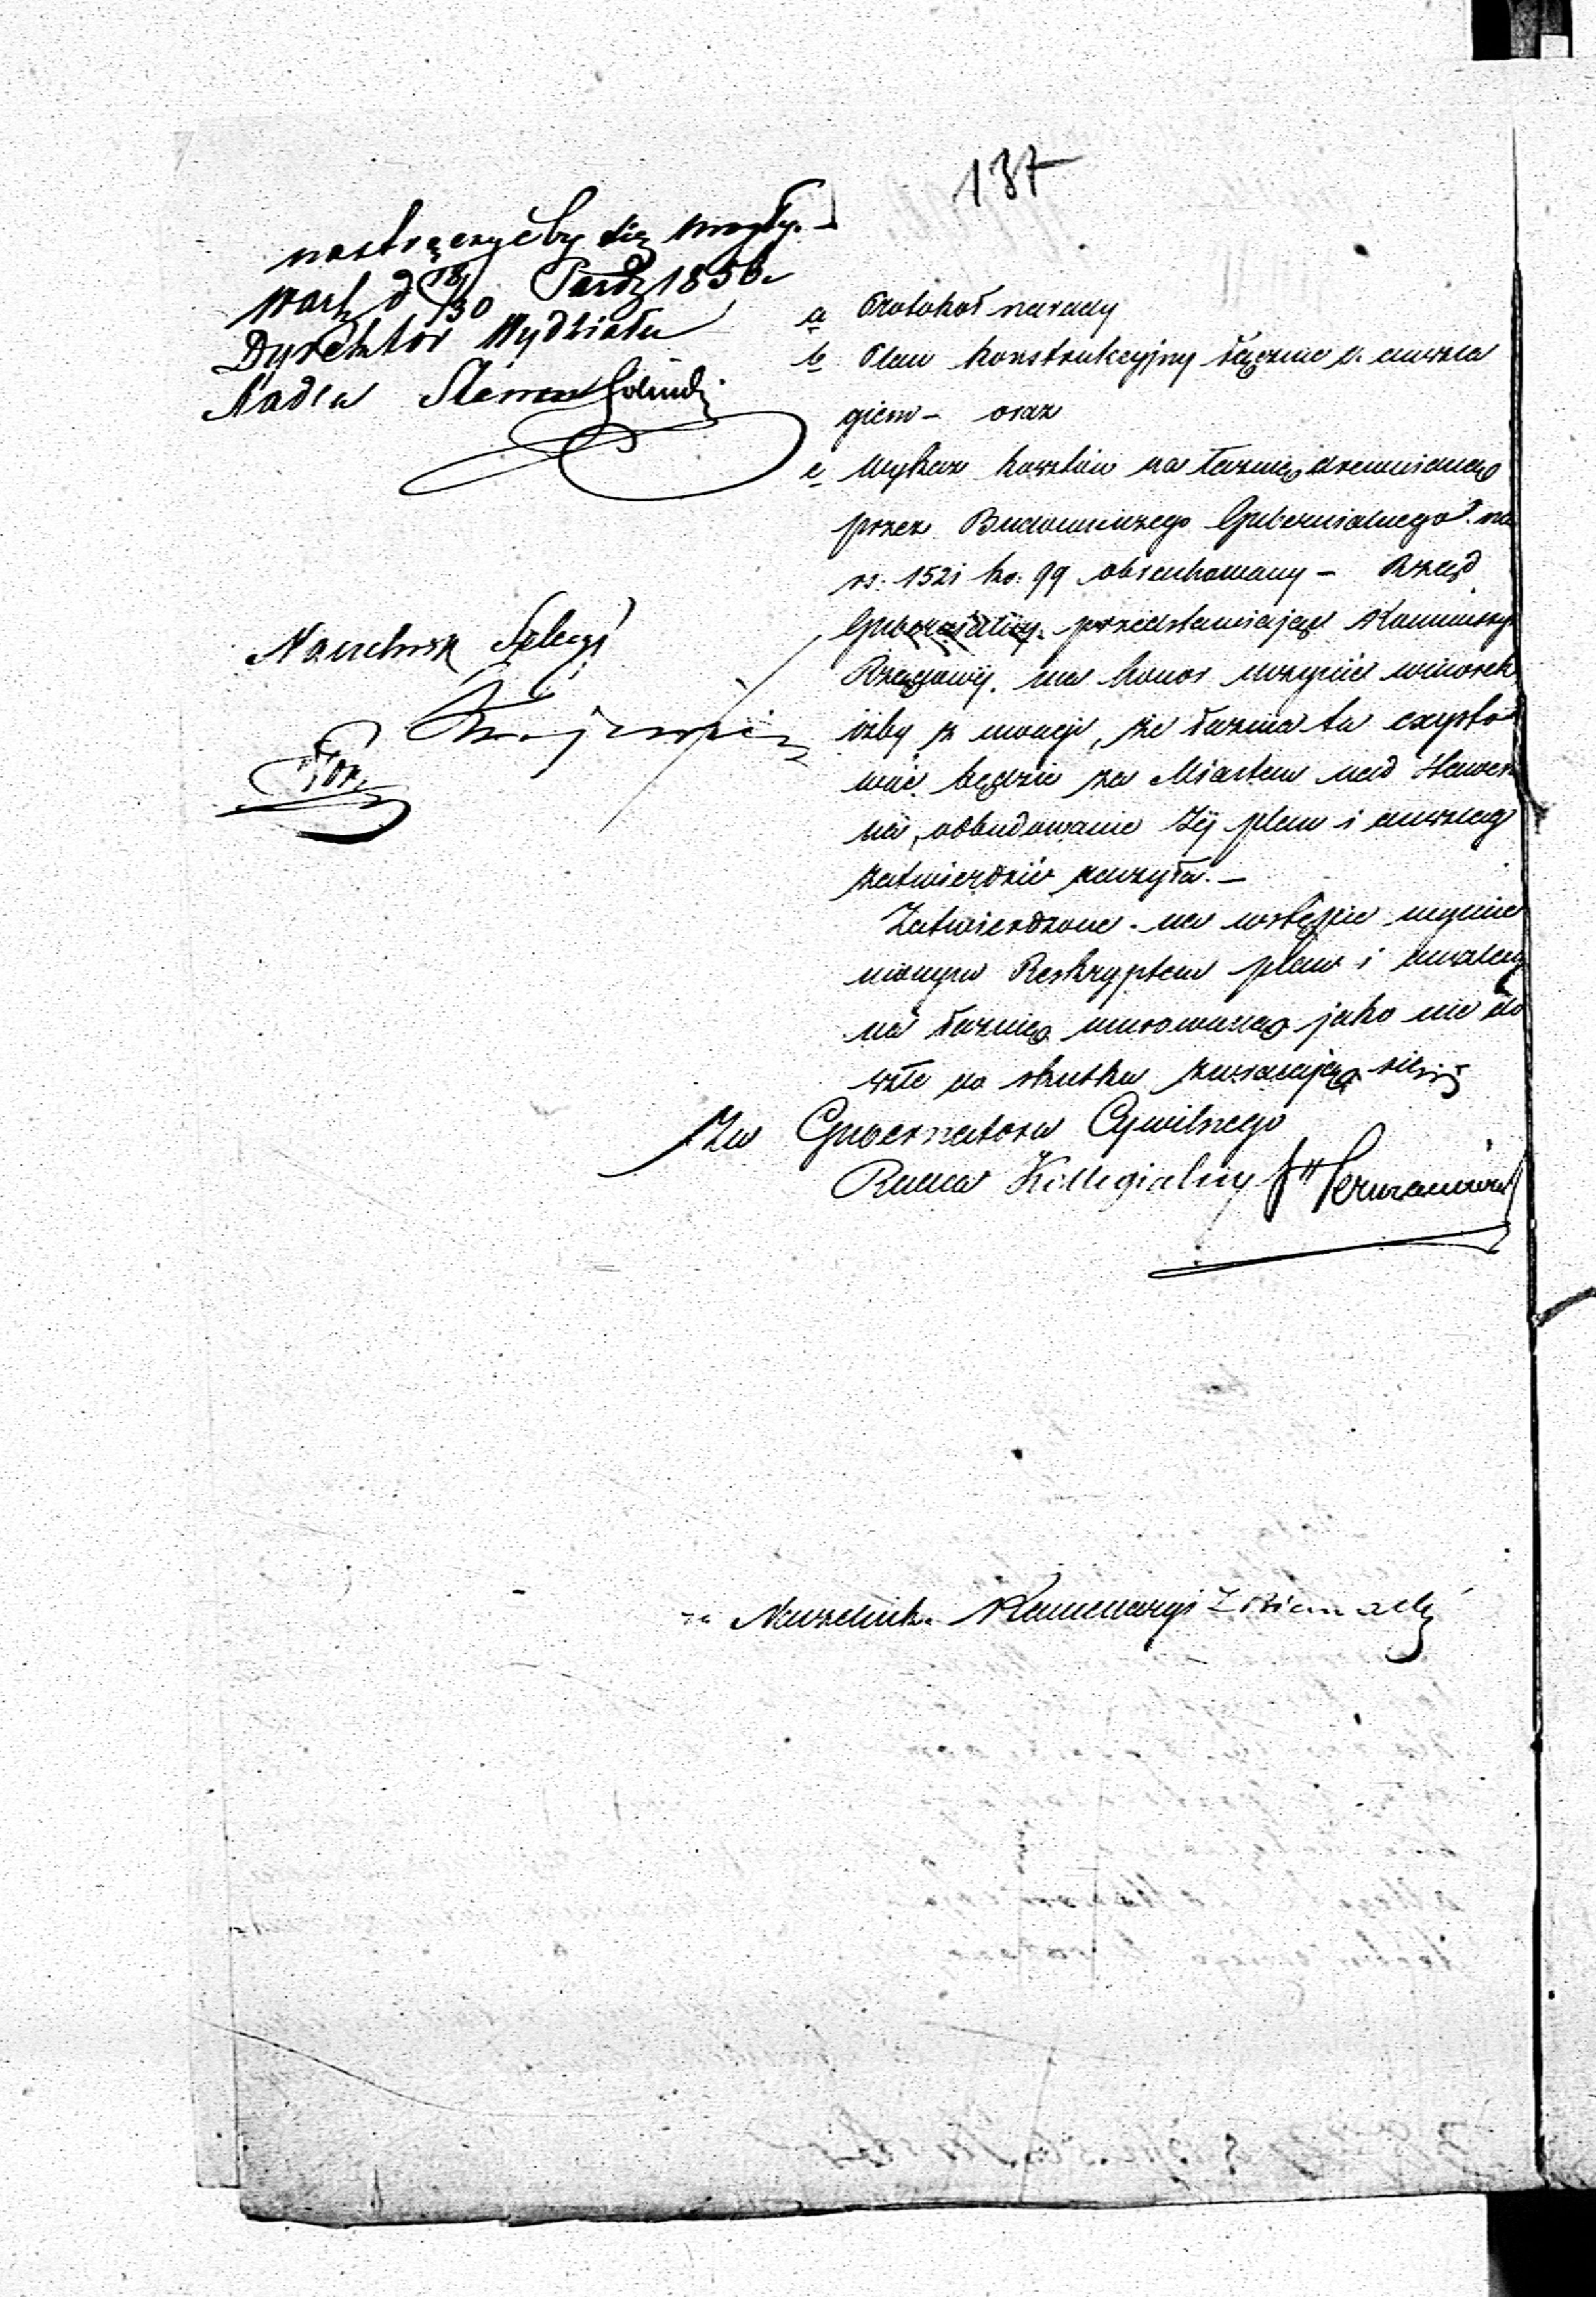 137
nastręczyćby się mogły.
Warsz d 18/30 Paźdz 1856
Dyrektor Wydziału
Radca
Naczelnik Sekcyi
a Protokoł narady
b Plan konstrukcyjny łącznie z anszla
giem – oraz
c Wykaz kosztów na łaznię drewnianą
przez Budowniczego Gubernialnego na
rs: 1521 ko: 99 obrachowany – Rząd
Gubernialny przedstawiając Kommissyi
Rządowéj, ma honor uczynić wniosek
iżby z uwagi, że łaznia ta exysto
wać będzie za Miastem nad
odbudowanie Jéj plan i anszlag
zatwierdzić raczyła. –
Zatwierdzone na wstępie wymie
nionym Reskryptem plan i anszlag
na łaznię murowaną jako nie do
szłe do skutku zwracają się
Za Gubernatora Cywilnego
Radca Kollegialny
za Naczelnika Kancellaryi